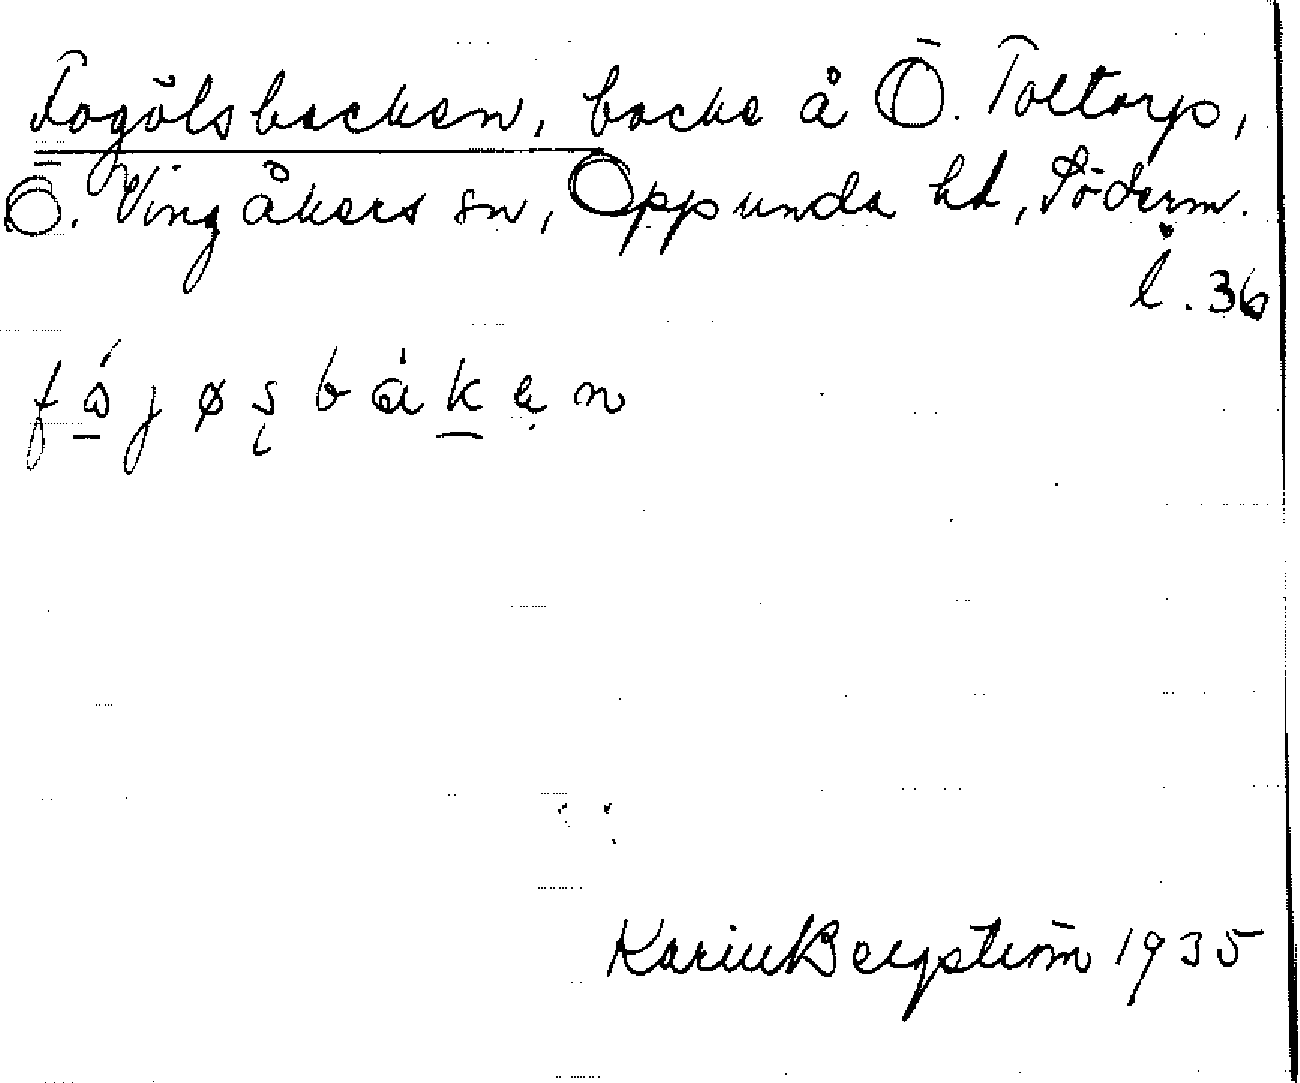 Fogölsbacken, backe å Ö. Toltorp,
Ö. Vingåkers sn, Oppunda hd, Söderm.
l. 36
fåjøsbakən
Karin Bergström 1935